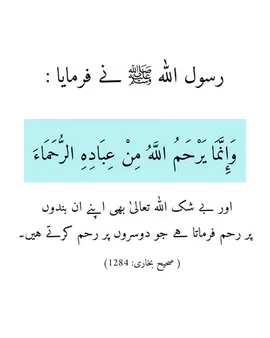 رسول اللہ ﷺ نے فرمایا :
وَإِنَّمَا يَرْحَمُ اللَّهُ مِنْ عِبَادِهِ الرُّحَمَاءَ
اور بے شک اللہ تعالیٰ بھی اپنے ان بندوں
پر رحم فرماتا ہے جو دوسروں پر رحم کرتے ہیں۔
( صحیح بخاری: 1284)